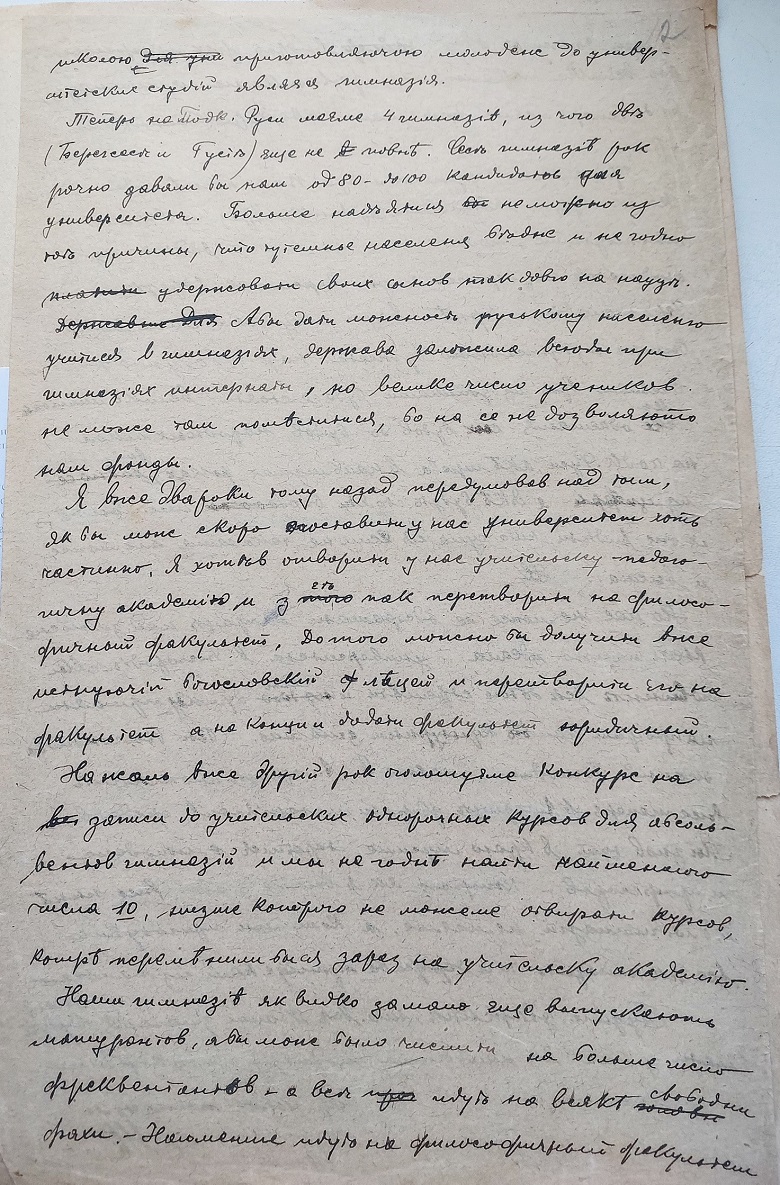 2
школою для уни приготовляючою молодеж до универ-
ситетских студий являєся гимназія.
Теперь на Подк. Руси маеме 4 гимназіѣ, из чого двѣ
(Берегсаст и Густ) еще не в повнѣ. Сесѣ гимназіѣ рок
рочно давали бы нам од 80-до 100 кандидатов для
университета. Больше надѣятися бы не можно из
тоѣ причины, что тутешнє населеня бѣдне и не годно
платити удержовати своих сынов так довго на науцѣ.
Державне Для Абы дати можность руському населеню
учитися в гимназіях, держава заложила всюды при
гимназіях интернаты, но велике число учеников
не може там помѣститися, бо на се не дозволяют
нам фонды.
Я вже два роки тому назад передумовав над тим,
як бы мож скоро поставити у нас университет хоть
частинно. Я хотѣв отворити у нас учительску педаго-
гичну академію и з того еѣ пак перетворити на филосо-
фичный факультет. До того можно бы долучити вже
истнуючій богословскій лѣцей и перетворити его на
факультет а на конци и додати факультет юридичный.
На жаль вже другій рок оголошуєме конкурс на
вс записи до учительских однорочных курсов для абсоль-
вентов гимназій и мы не годнѣ найти найменшого
числа 10, низше котрого не можеме отвирати курсов,
котрѣ перемѣнили бы ся зараз на учительску академію.
Наши гимназіѣ як видко замало еще выпускають
матурантов, абы мож было числити на больше число
фреквентантов - а всѣ при идуть на всякѣ головнѣ свободни
фахи. - Найменше идуть на философичный факультет